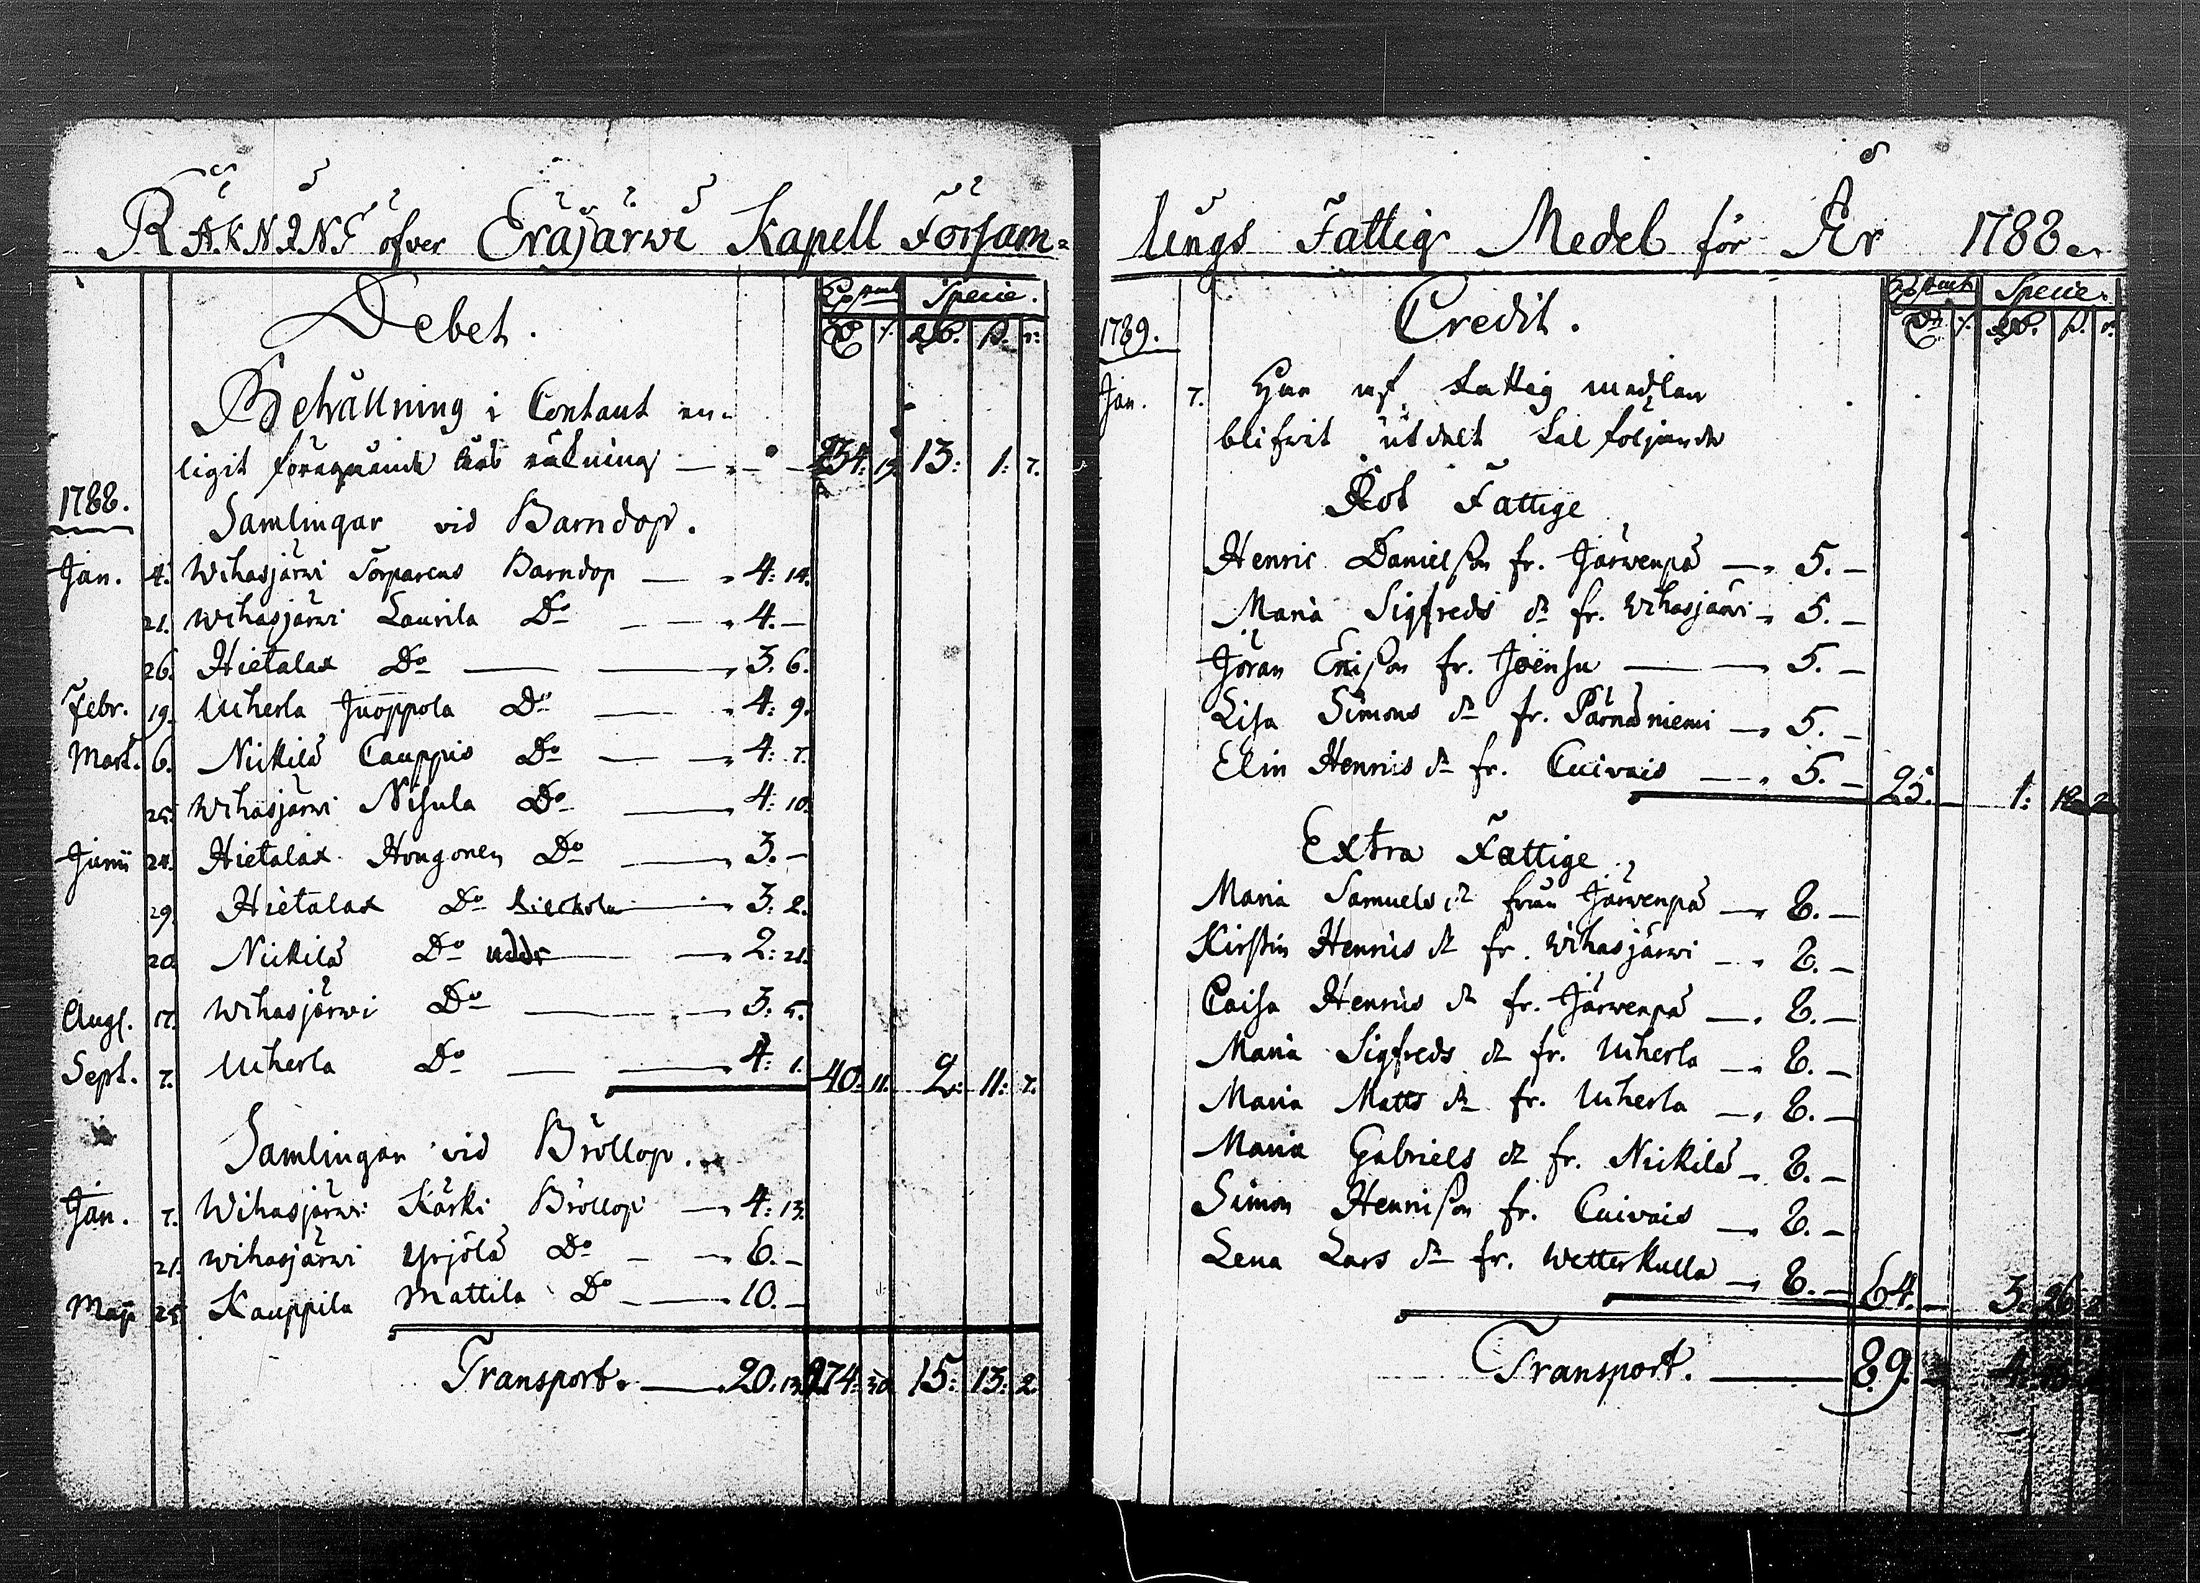 RÄKNING öfver Eräjärwi Kapell Försam=
Debet.
Specie.
Behållning i Contant en-
ligit föregående års räkning — 234: 19. 13: 1: 7.
1788.
Samlingar vid Barndop.
Jan. 4. Wihasjärwi Torparens Barndop — 4: 14.
21. Wihasjärwi Laurila Do — 4. —
26. Hietalax Do — 3. 6.
Febr. 19. Uiherla Juoppola Do — 4: 9.
Mart. 6. Niikilä Cauppis Do — 4: 7.
25. Wihasjärwi Nisula Do — 4: 10.
Junii 24. Hietalax Hongonen Do — 3. —
29. Hietalax Do — 3: 2.
20. Niikilä Do — 2: 21.
Aug. 17. Wihasjärwi Do — 3. 5.
Sept. 7. Uiherla Do — 4: 1. 40: 11. 2: 11: 7.
Samlingar vid Bröllop.
Jan. 7. Wihasjärwi Kärki Bröllop — 4: 13.
21. Wihasjärwi Yrjölä Do — 6. —
Maji 25. Kauppila Mattila Do — 10. —
Transport. — 20. 13. 274: 30. 15: 13: 2.
lings Fattig Medel för År 1788.
Credit.
Specie.
1789.
Jan. 7. Har af Fattig medlen
blifvit utdelt til följande
Rot Fattige
Henric Danielsson fr. Järwenpä — 5. —
Maria Sigfreds dr fr. Wihasjärwi — 5. —
Jöran Ericsson fr. Joënsu — 5. —
Lisa Simons dr fr. Pärnäniemi — 5. —
Elin Henrics dr fr. Cuivais — 5. — 25. — 1: 18. 2.
Extra Fattige.
Maria Samuels dr från Järwenpä — 8. —
Kirstin Henrics dr fr. Wihasjärwi — 8. —
Caisa Henrics dr fr. Järwenpä — 8. —
Maria Sigfreds dr fr. Uiherla — 8. —
Maria Matts dr fr. Uiherla — 8. —
Maria Gabriels dr fr. Niikilä — 8. —
Simon Henricsson fr. Cuivais — 8. —
Lena Lars dr fr. Wetterkulla — 8. — 64. — 3. 26.
Transport. — 89. —